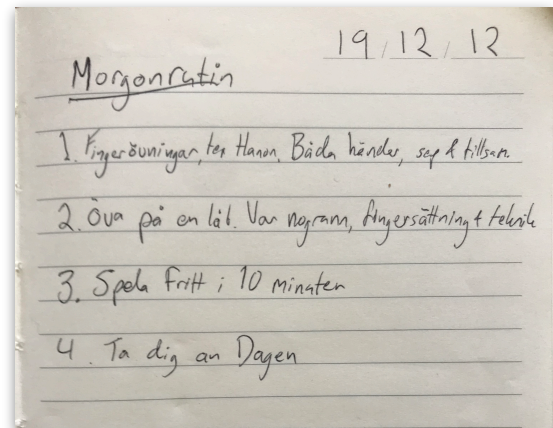 19/12/12
Morgonrutin
1. Fingerövningar, tex Hanon. Båda händer, sep & tillsam.
2. Öva på en låt. Var nogram, fingersättning + teknik
3. Spela Fritt i 10 minuter
4. Ta dig an Dagen